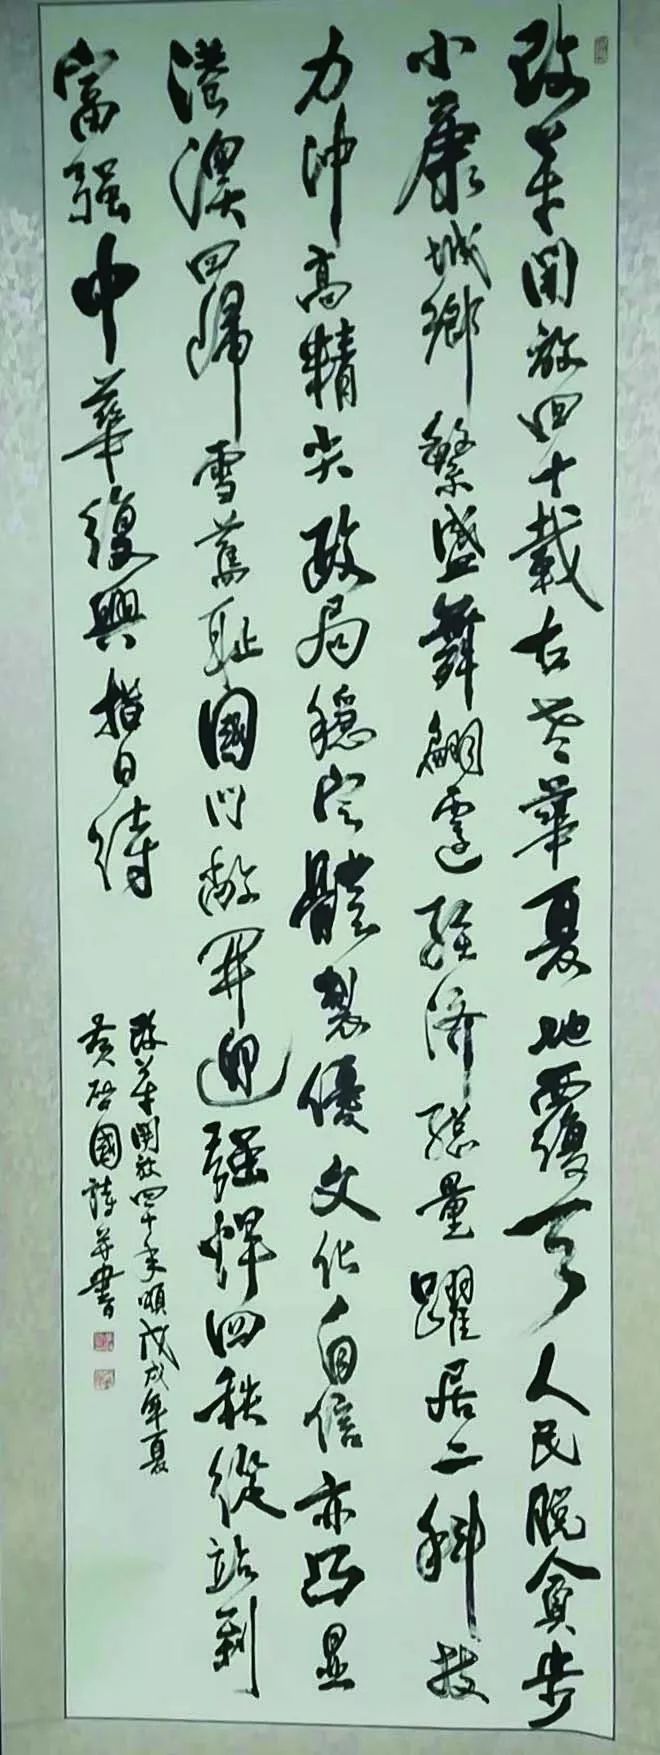 改革開放四十載古老華夏地覆天人民脱貧步
小康城鄉繁盛舞翩遷經济總量躍居二科技
力沖高精尖政局穩定體製優文化自信亦凸显
港澳回歸雪舊耻國门敞開迎强悍四秩從站到
富强中華復興指日待
改革開放四十年頌戊戌年夏
黄啟國詩并書